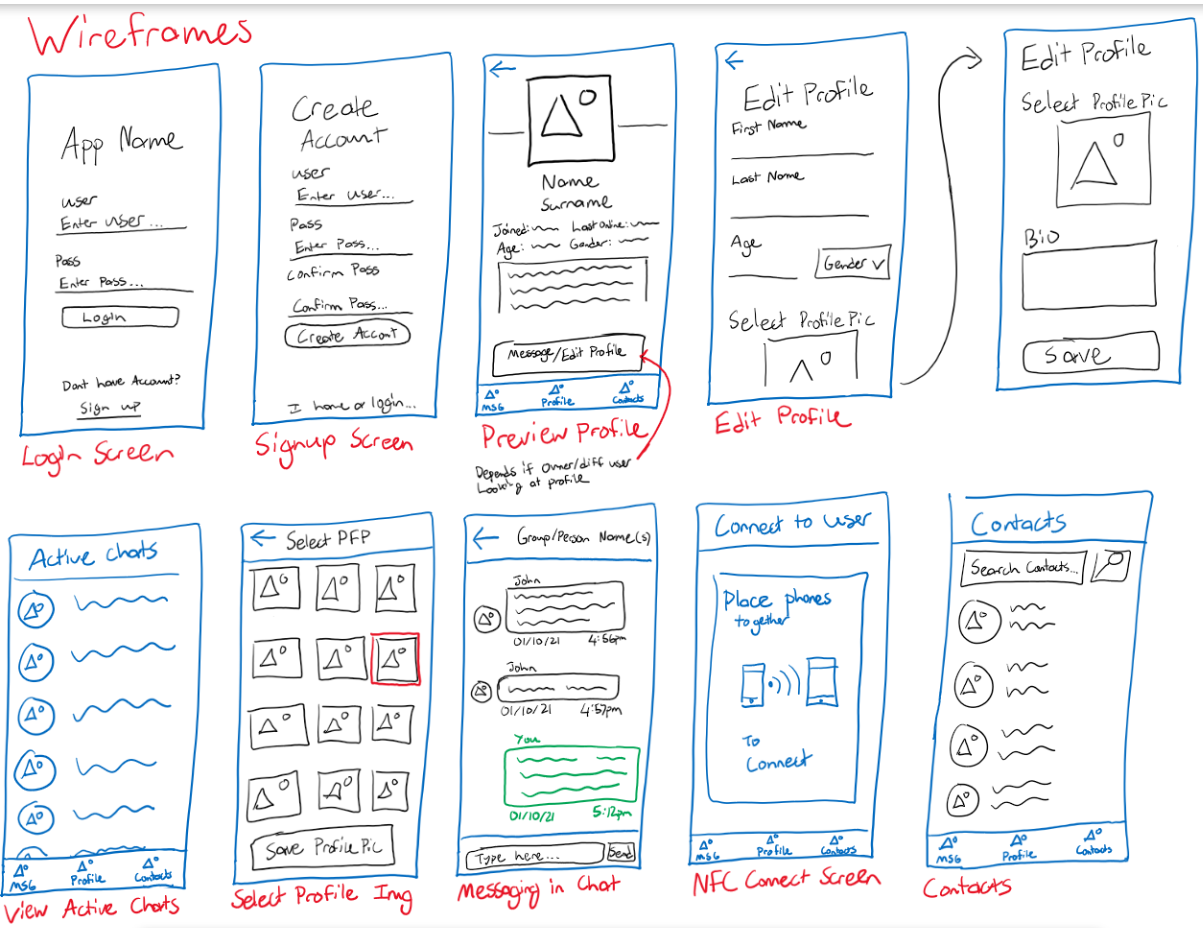 Wireframes
App Name
user
Enter User ...
Pass
Enter Pass...
Login
Dont have Account?
Sign up
Login Screen
Create
Account
user
Enter User...
Pass
Enter Pass...
Confirm Pass
Confirm Pass...
Create Accont
I have a login...
Signup Screen
Name
Surname
Joined: Last Online:
Age: Gender:
Message/Edit Profile
MSG Profile Contacts
Preview Profile
Depends if Owner/diff user
Looking at profile
Edit Profile
First Name
Last Name
Age
Gender
Select Profile Pic
Edit Profile
Edit Profile
Select Profile Pic
Bio
Save
Active Chats
MSG Profile Contacts
View Active Chats
Select PFP
Save Profile Pic
Select Profile Img
Group/Person Name(s)
John
01/10/21 4:56pm
John
01/10/21 4:57pm
You
01/10/21 5:12pm
Type here... Send
Messaging in Chat
Connect to user
Place phones
together
To
Connect
MSG Profile Contacts
NFC Connect Screen
Contacts
Search Contacts...
MSG Profile Contacts
Contacts